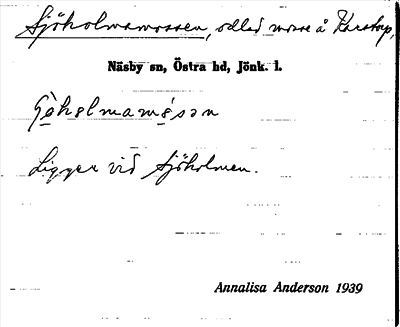 Sjöholmamossen, odlad mosse å Karstorp,
Näsby sn, Östra hd, Jönk. l.
Ligger vid Sjöholmen.
Annalisa Anderson 1939